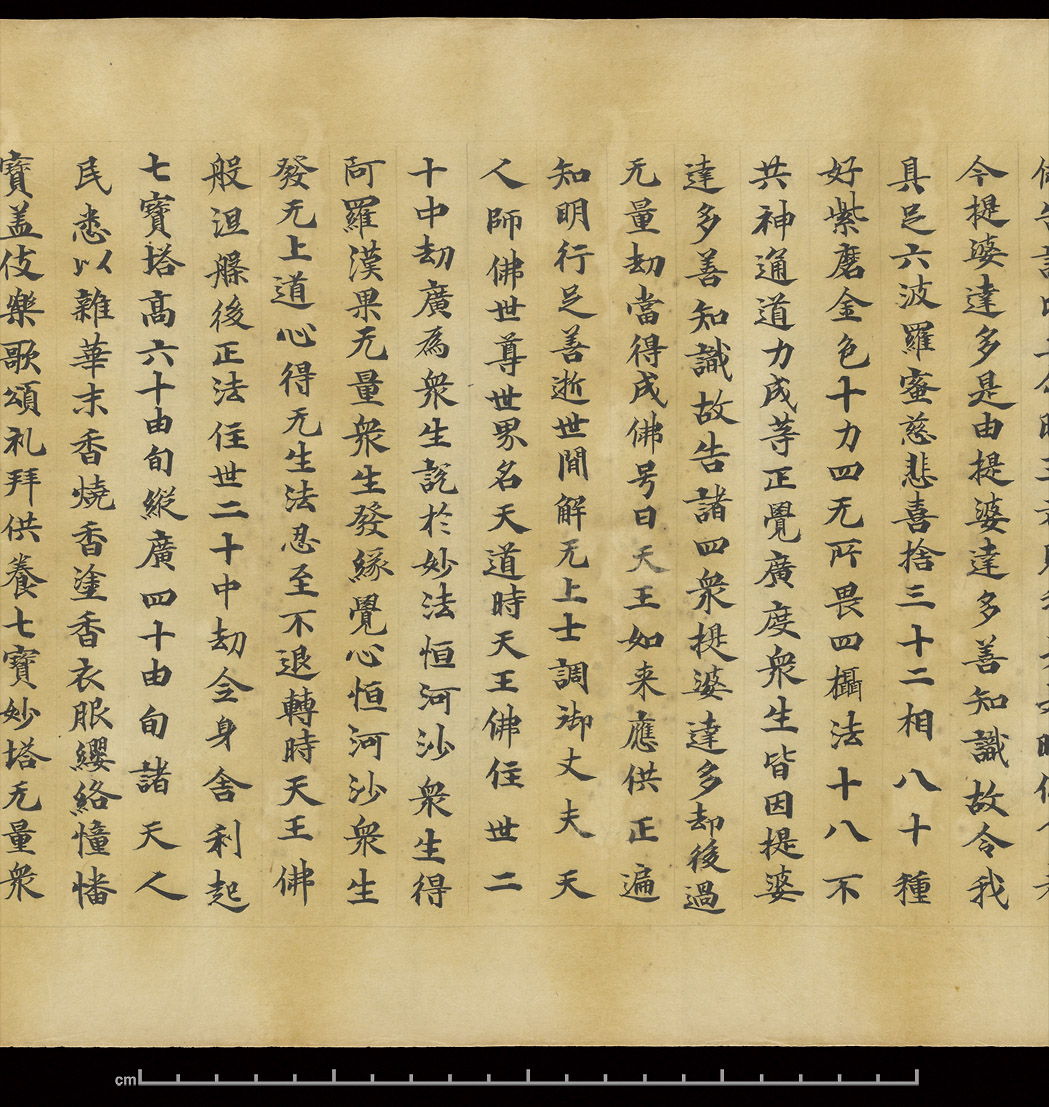 今提婆達多是由提婆達多善知識故令我
具足六波羅蜜慈悲喜捨三十二相八十種
好紫磨金色十力四无所畏四攝法十八不
共神通道力成等正覺廣度衆生皆因提婆
達多善知識故告諸四衆提婆達多却後過
无量劫當得成佛号曰天王如来應供正遍
知明行足善逝世間解无上士調御丈夫天
人師佛世尊世界名天道時天王佛住世二
十中劫廣為衆生說於妙法恒河沙衆生得
阿羅漢果无量衆生發緣覺心恒河沙衆生
發无上道心得无生法忍至不退轉時天王佛
般涅槃後正法住世二十中劫全身舍利起
七寶塔高六十由旬縱廣四十由旬諸天人
民悉以雜華末香燒香塗香衣服纓絡幢幡
寶盖伎樂歌頌礼拜供養七寶妙塔无量衆
cm